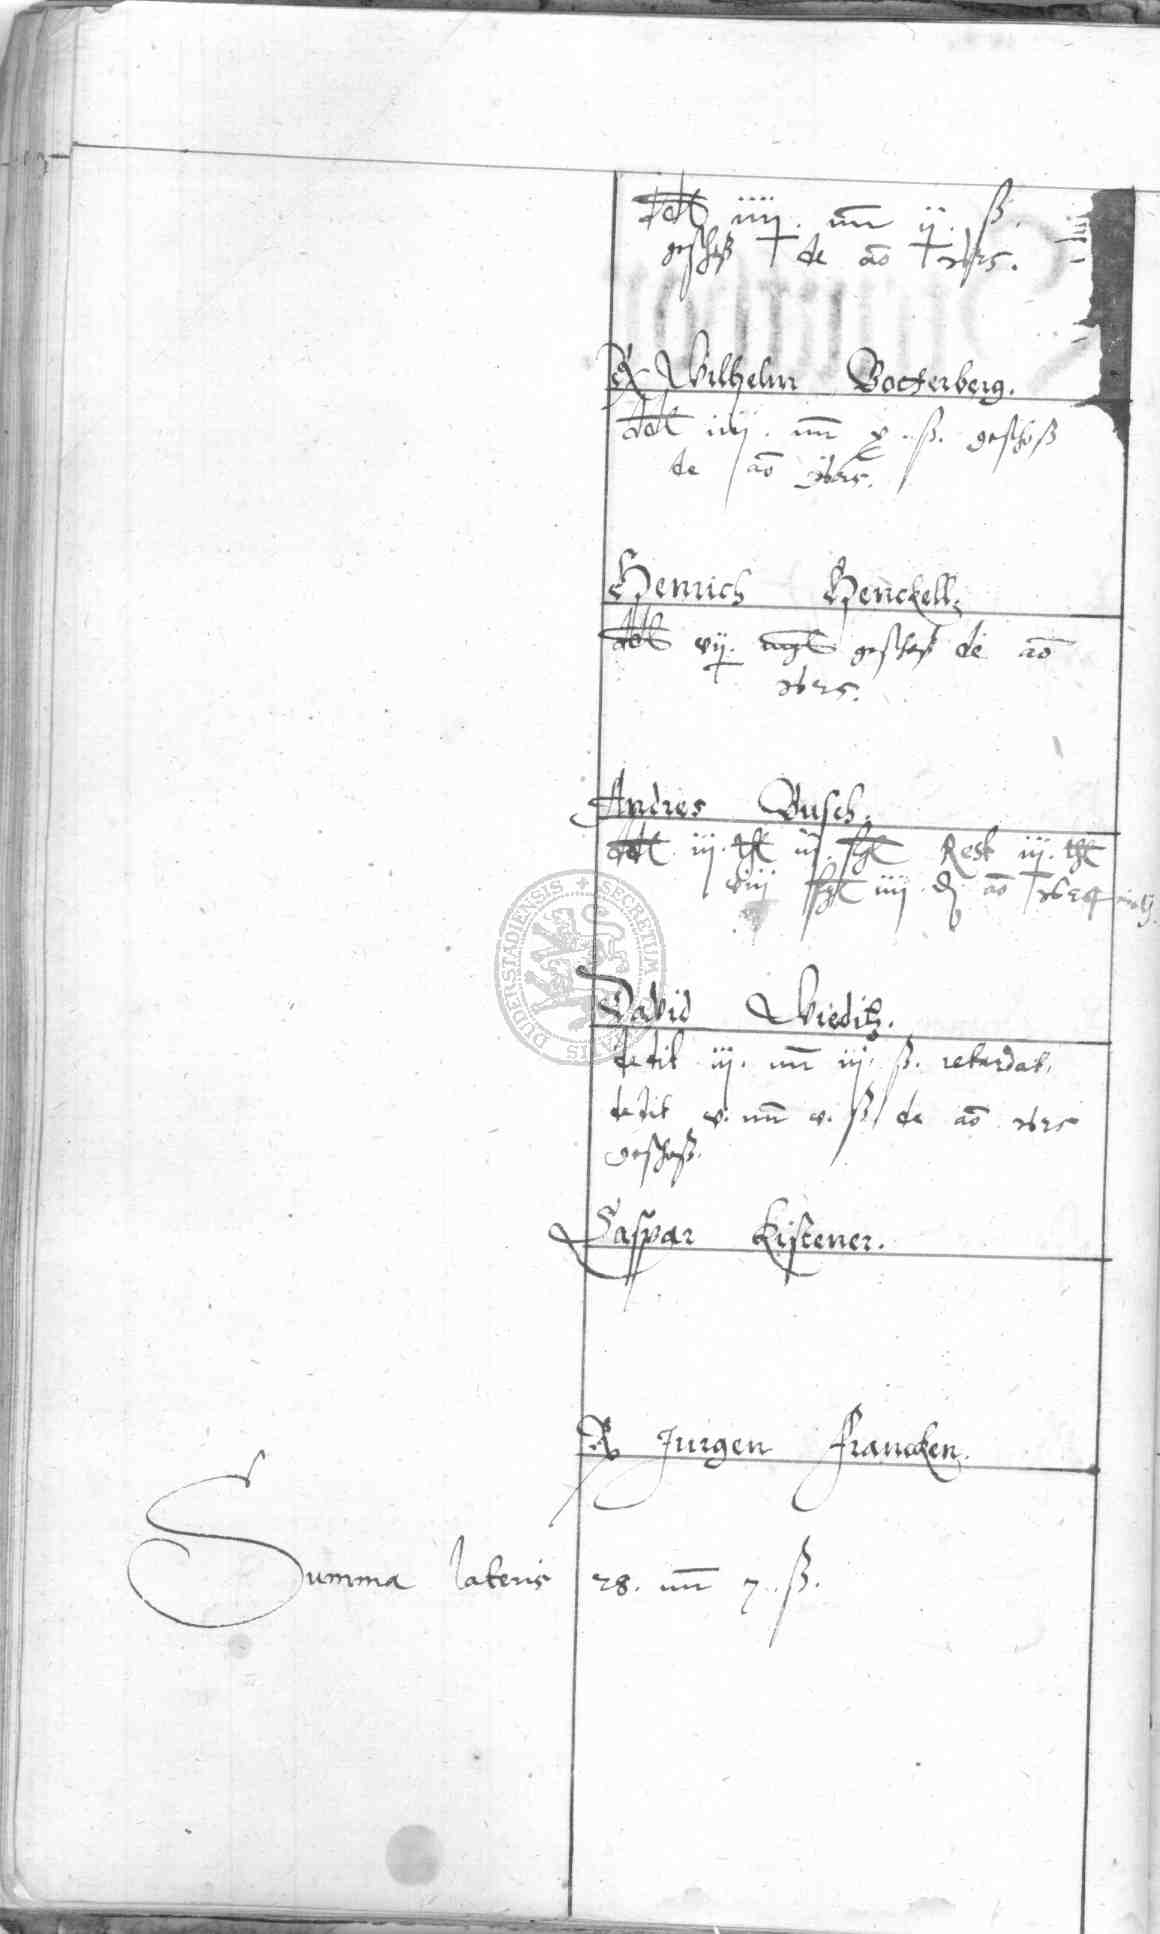 dedit iiij. mr ij. ß
geschoß de ao 1625.
Wilhelm Bockerberg.
dedit iiij. mr x ß. geschoß
de ao 1625.
Henrich Henckell.
dedit vij. geschoß de ao
1625.
Andres Busch.
dedit iij. thl iij. ßgl Rest iij. thl
viij ßgl iiij ao 1624
David Wieditz.
dedit iij. mr iij. ß. retardat.
dedit v. mr v. ß de ao 1625
geschoß.
Caspar Kistener.
Jurgen Francken.
Summa lateris 28. mr 7. ß.
DUDERSTADIENSIS SECRETUM